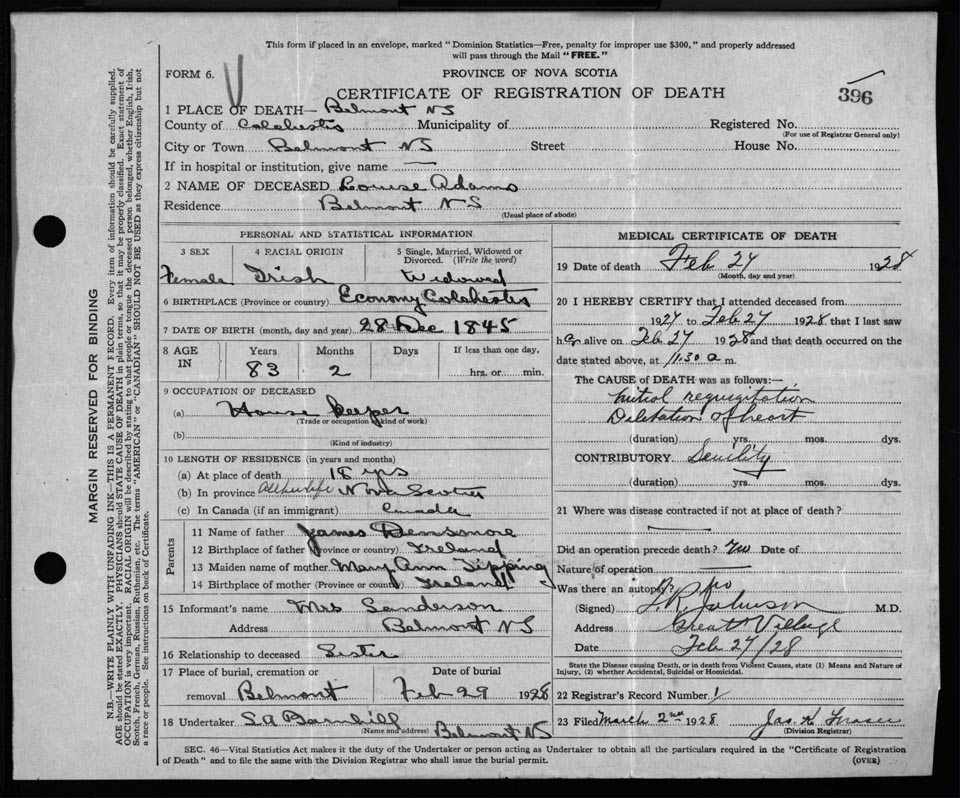 This form if placed in an envelope, marked "Dominion Statistics—Free, penalty for improper use $300," and properly addressed
will pass through the Mail "FREE."
FORM 6.
PROVINCE OF NOVA SCOTIA
CERTIFICATE OF REGISTRATION OF DEATH
396
1 PLACE OF DEATH— Belmont NS
County of Colchester Municipality of Registered No.
(For use of Registrar General only)
City or Town Belmont NS Street House No.
If in hospital or institution, give name —
2 NAME OF DECEASED Louise Adams
Residence Belmont NS
(Usual place of abode)
PERSONAL AND STATISTICAL INFORMATION
3 SEX 4 RACIAL ORIGIN 5 Single, Married, Widowed or
Divorced. (Write the word)
Female Irish Widowed
6 BIRTHPLACE (Province or country) Economy Colchester
7 DATE OF BIRTH (month, day and year) 28 Dec 1845
8 AGE IN Years Months Days If less than one day,
83 2 hrs. or min.
9 OCCUPATION OF DECEASED
(a) House Keeper
(Trade or occupation kind of work)
(b)
(Kind of industry)
10 LENGTH OF RESIDENCE (in years and months)
(a) At place of death 18 yrs
(b) In province All her life Nova Scotia
(c) In Canada (if an immigrant) Canada
Parents
11 Name of father James Densmore
12 Birthplace of father (Province or country) Ireland
13 Maiden name of mother Mary Ann Tipping
14 Birthplace of mother (Province or country) Ireland
15 Informant's name Mrs Sanderson
Address Belmont NS
16 Relationship to deceased Sister
17 Place of burial, cremation or Date of burial
removal Belmont Feb 29 1928
18 Undertaker S A Barnhill
(Name and address) Belmont NS
MEDICAL CERTIFICATE OF DEATH
19 Date of death Feb 27 1928
(Month, day and year)
20 I HEREBY CERTIFY that I attended deceased from
1927 to Feb 27 1928 that I last saw
her alive on Feb 27 1928 and that death occurred on the
date stated above, at 11.30 a m.
The CAUSE OF DEATH was as follows:—
Mitral regurgitation
Diletation of heart
(duration) yrs. mos. dys.
CONTRIBUTORY Senility
(duration) yrs. mos. dys.
21 Where was disease contracted if not at place of death?
—
Did an operation precede death? no Date of
Nature of operation —
Was there an autopsy? no
(Signed) Johnson M.D.
Address Great Village
Date Feb 27/28
State the Disease causing Death, or in death from Violent Causes, state (1) Means and Nature of
Injury, (2) whether Accidental, Suicidal or Homicidal.
22 Registrar's Record Number 1
23 Filed March 2nd 1928 Jas. K Fraser
(Division Registrar)
SEC. 46—Vital Statistics Act makes it the duty of the Undertaker or person acting as Undertaker to obtain all the particulars required in the "Certificate of Registration
of Death" and to file the same with the Division Registrar who shall issue the burial permit. (OVER)
MARGIN RESERVED FOR BINDING
N.B.—WRITE PLAINLY WITH UNFADING INK—THIS IS A PERMANENT RECORD. Every item of information should be carefully supplied.
AGE should be stated EXACTLY. PHYSICIANS should STATE CAUSE OF DEATH in plain terms, so that it may be properly classified. Exact statement of
OCCUPATION is very important. RACIAL ORIGIN will be described by stating to what people or tongue the deceased person belonged, whether English, Irish,
Scotch, French, German, Russian, Ruthenian, etc. The terms "AMERICAN" or "CANADIAN" SHOULD NOT BE USED as they express citizenship but not
a race or people. See instructions on back of Certificate.